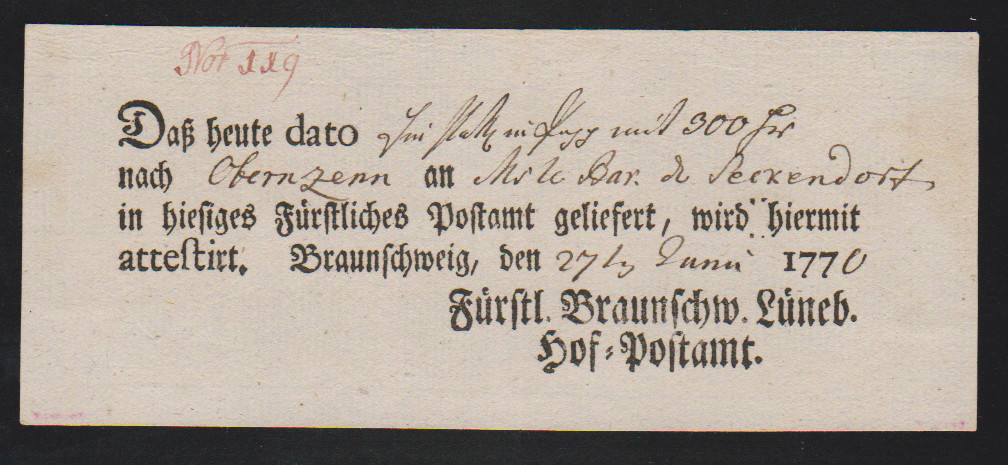 No 119
Daß heute dato Ein Pack in Papp mit 300
nach Obernzenn an Mr le Bar. de Seckendorf
in hiesiges Fürstliches Postamt geliefert, wird hiermit
attestirt. Braunschweig, den 27ten Junii 1770
Fürstl. Braunschw. Lüneb.
Hof-Postamt.